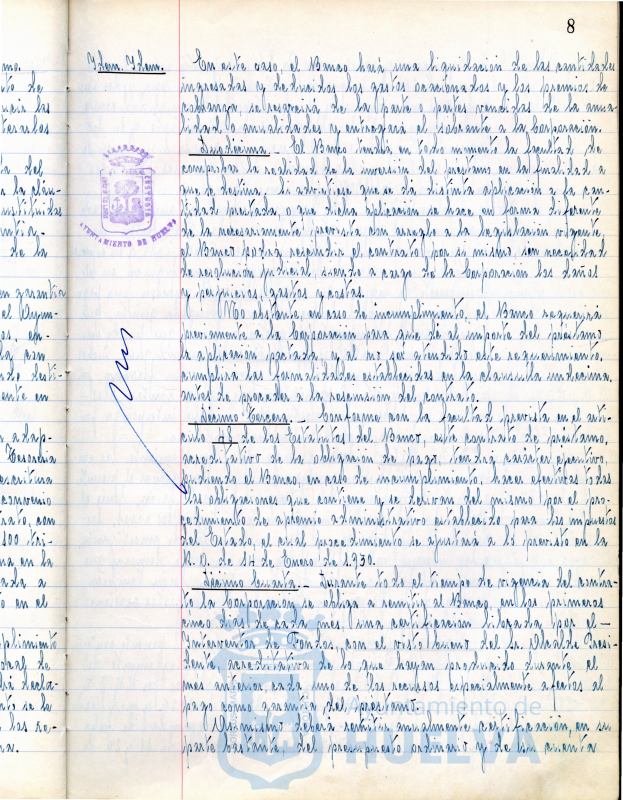 8
Idem. Idem.
En este caso, el Banco hará una liquidación de las cantidades
ingresadas y deducidos los gastos ocasionados y los premios de
cobranza, se resarcirá de la parte o partes vencidas de la anua-
lidad o anualidades y entregará el sobrante a la Corporación.
Duodécima.- El Banco tendrá en todo momento la facultad de
comprobar la realidad de la inversión del préstamo en la finalidad a
que se destina. Si advirtiese que se dá distinta aplicación a la can-
tidad prestada, o que dicha aplicación se hace en forma diferente
de la necesariamente prevista con arreglo a la legislación vigente,
el Banco podrá rescindir el contrato por si mismo, sin necesidad
de resolución judicial, siendo a cargo de la Corporación los daños
y perjuicios, gastos y costas.
No obstante, en caso de incumplimiento, el Banco requerirá
previamente a la Corporación para que dé al importe del préstamo
la aplicación pactada, y al no ser atendido este requerimiento,
cumplirá las formalidades establecidas en la clausula undecima,
antes de proceder a la rescisión del contrato.
Décimo Tercera.- Conforme con la facultad prevista en el artí-
culo 48 de los Estatutos del Banco, este contrato de préstamo,
acreditativo de la obligación de pago, tendrá carácter ejecutivo,
pudiendo el Banco, en caso de incumplimiento, hacer efectivas todas
las obligaciones que contiene y se derivan del mismo por el pro-
cedimiento de apremio administrativo establecido para los impuestos
del Estado, el cual procedimiento se ajustará a lo previsto en la
R. O. de 14 de Enero de 1.930.
Décimo Cuarta.- Durante todo el tiempo de vigencia del contra-
to la Corporación se obliga a remitir al Banco, en los primeros
cinco dias de cada mes, una certificación librada por el -
Interventor de Fondos, con el visto bueno del Sr. Alcalde Presi-
dente, acreditativa de lo que hayan producido durante el
mes anterior cada uno de los recursos especialmente afectos al
pago como garantía del préstamo.
Asimismo deberá remitir anualmente certificación, en su
parte bastante, del presupuesto ordinario y de la cuenta
AYUNTAMIENTO DE HUELVA
Ayuntamiento de
HUELVA